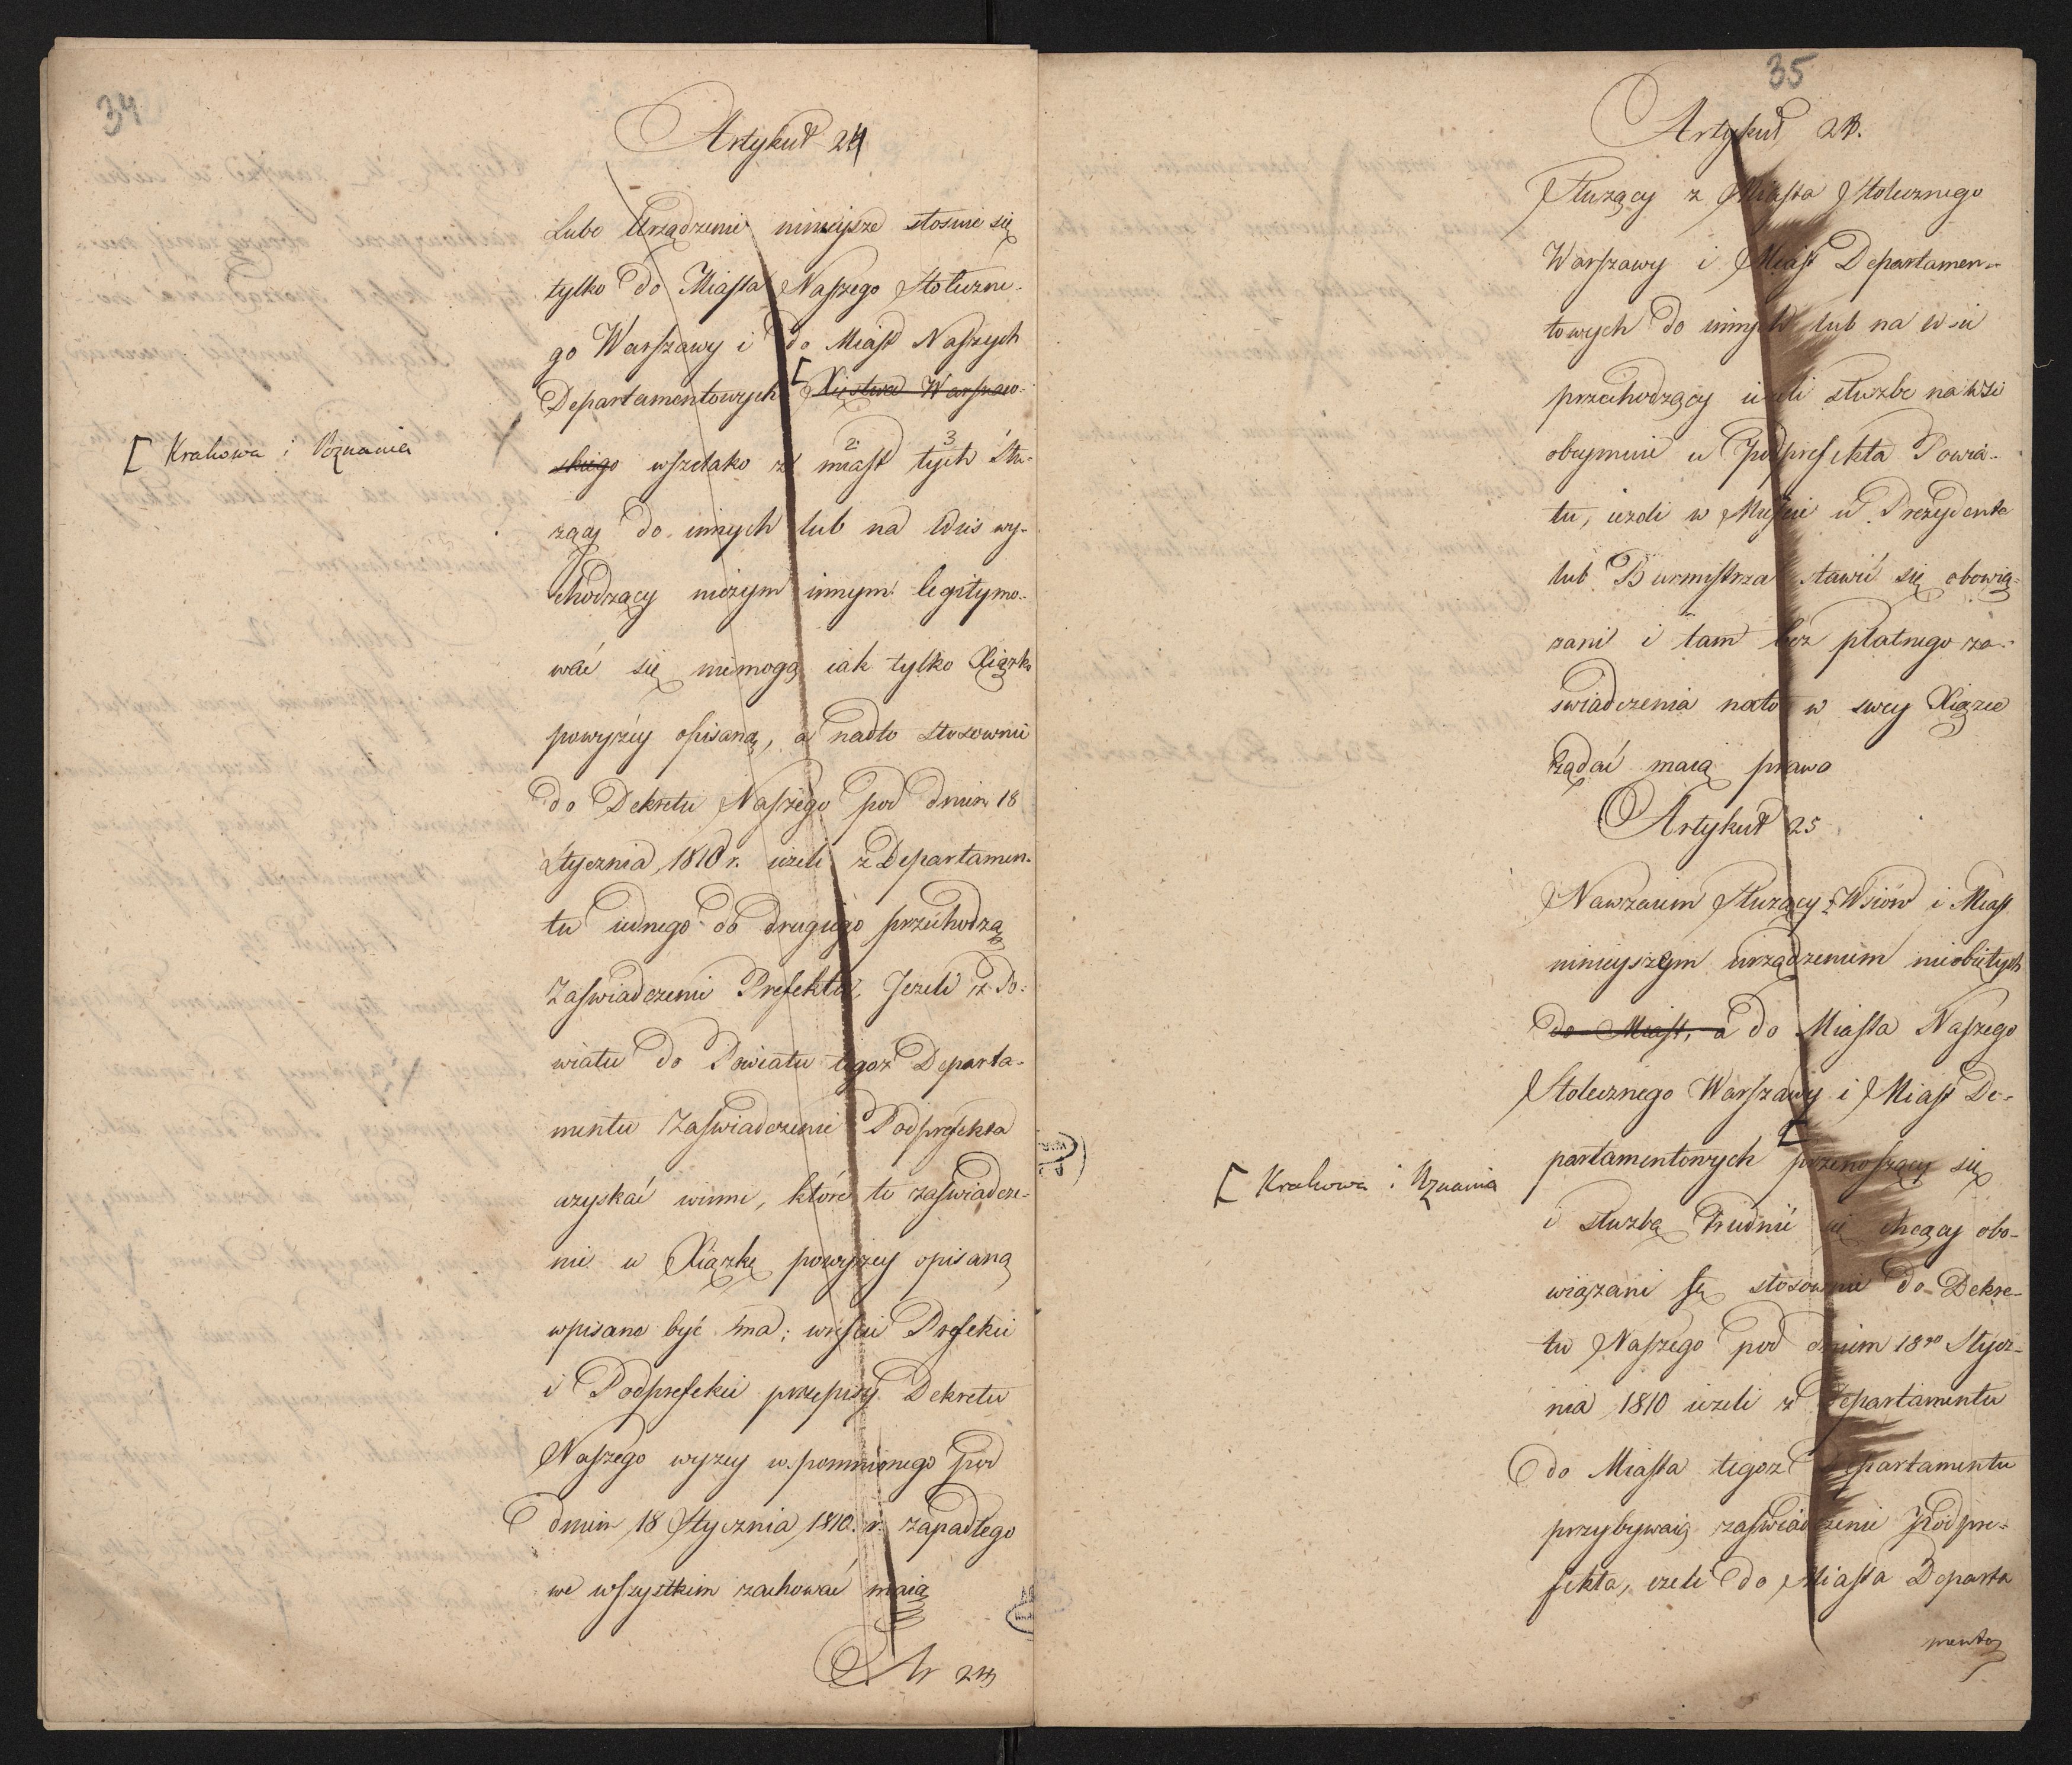 34
Artykuł 24
Lubo Urządzenie ninieysze stosuie się
tylko do Miasta Naszego Stołeczne-
go Warszawy i do Miast Naszych
Departamentowych [ Xięstwa Warszaw-
[ Krakowa i Poznania
skiego wszelako z miast tych Słu-
2 3
żący do innych lub na Wieś wy-
chodzący niczym innym legitymo-
wać się niemogą iak tylko Xiążką
powyżey opisaną, a nadto stosownie
do Dekretu Naszego pod dniem 18
Stycznia 1810 r. ieżeli z Departamen-
tu iednego do drugiego przechodzą
Zaświadczenie Prefekta, Jeżeli z Po-
wiatu do Powiatu tegoż Departa-
mentu Zaświadczenie Podprefekta
uzyskać winni, które to zaświadcze-
nie w Xiążkę powyżey opisaną
wpisane być ma; wreście Prefekci
i Podprefekci przepisy Dekretu
Naszego wyżey wspomnionego pod
dniem 18 Stycznia 1810. r. zapadłego
we wszystkim zachować maią
Ar 24
35
Artykuł 24.
Służący z Miasta Stołecznego
Warszawy i Miast Departamen-
towych do innych lub na wsie
przechodzący ieżeli służbę na wsi
obeymuie u Podprefekta Powia-
tu, ieżeli w Mieście u Prezydenta
lub Burmistrza stawić się obowią-
zani i tam bez płatnego za-
świadczenia na to w swey Xiążce
żądać maią prawo
Artykuł 25
Nawzaiem Służący z Wsiów i Miast
ninieyszym urządzeniem nieobiętych
do Miast, a do Miasta Naszego
Stołecznego Warszawy i Miast De-
partamentowych [ przenoszący się
[ Krakowa i Poznania
i służbą trudnić się chcący obo-
wiązani są stosownie do Dekre-
tu Naszego pod dniem 18go Stycz-
nia 1810 ieżeli z Departamentu
do Miasta tegoż Departamentu
przybywaią zaświadczenie Podpre-
fekta, ieżeli do Miasta Departa
mentu